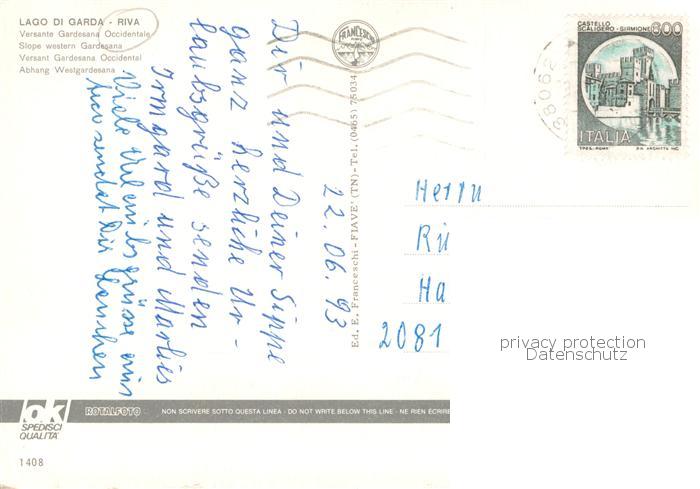 LAGO DI GARDA - RIVA
Versante Gardesana Occidentale
Slope western Gardesana
Versant Gardesana Occidental
Abhang Westgardesana
FRANCESCHI
CASTELLO
SCALIGERO - SIRMIONE
600
ITALIA
I.P.Z.S. - ROMA
38062
22.06.93
Dir und Deiner Sippe
ganz herzliche Ur-
laubsgrüße senden
Irmgard und Marlies
Viele Urlaubsgrüsse aus
sendet Dir
Ed. E. Franceschi - FIAVE' (TN) - Tel. (0465) 75034
Herrn
Rü
Ha
2081
privacy protection
Datenschutz
ok
SPEDISCI
QUALITA'
ROTALFOTO
NON SCRIVERE SOTTO QUESTA LINEA - DO NOT WRITE BELOW THIS LINE - NE RIEN ÉCRIRE
1408